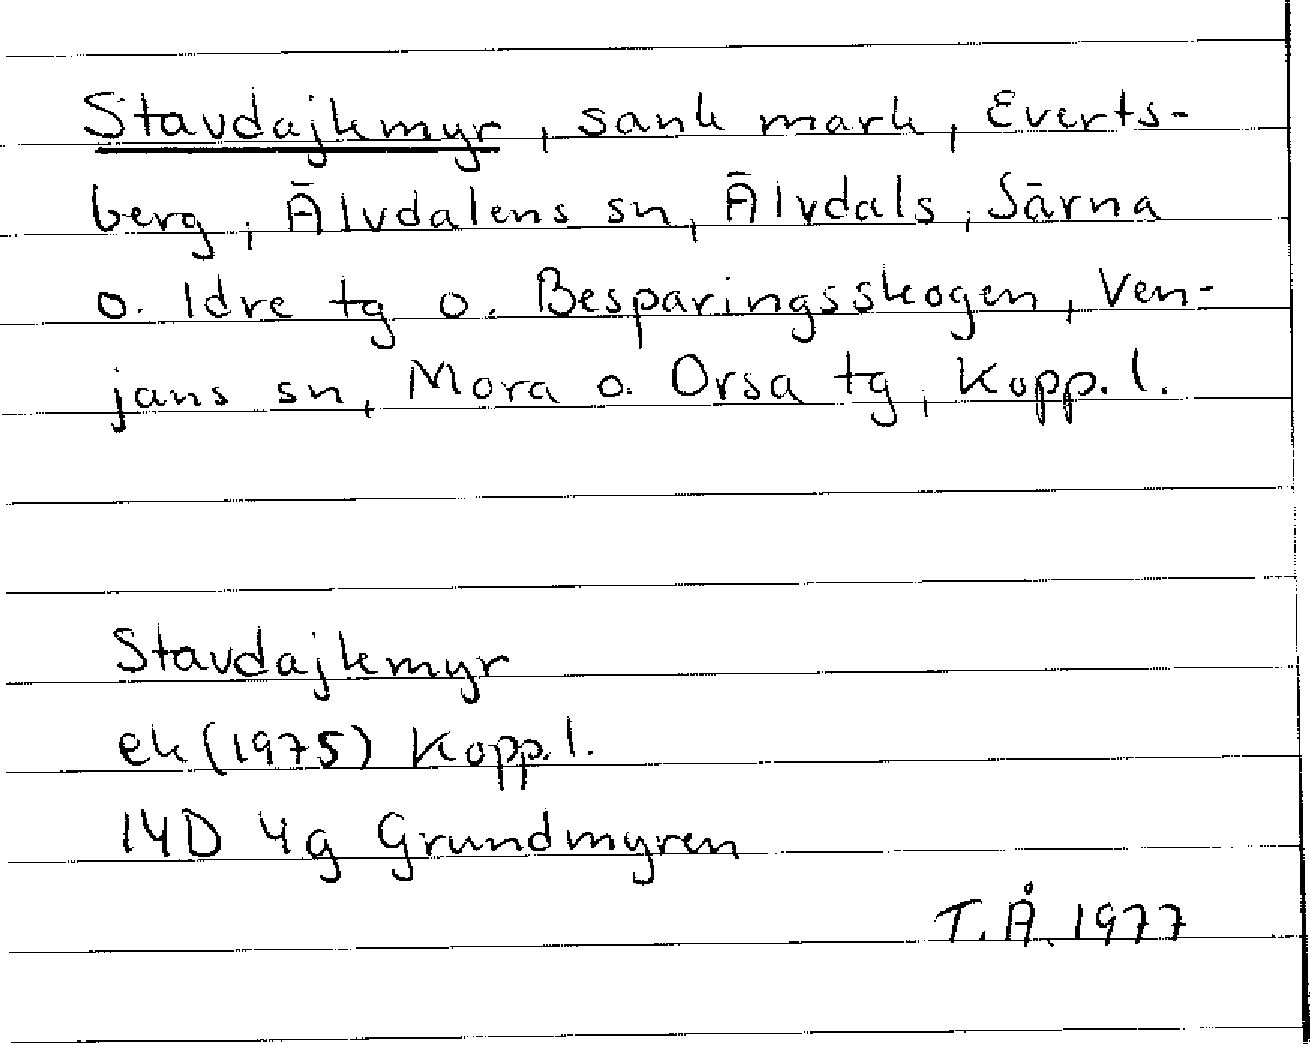 Stavdajkmyr, sank mark, Everts-
berg, Älvdalens sn, Älvdals, Särna
o. Idre tg o. Besparingsskogen, Ven-
jans sn, Mora o. Orsa tg, Kopp. l.
Stavdajkmyr
ek (1975) Kopp. l.
14D 4g Grundmyren
T.Å. 1977